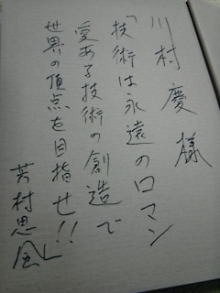 川村慶様
「技術は永遠のロマン
愛ある技術の創造で
世界の頂点を目指せ!!」
芳村思風